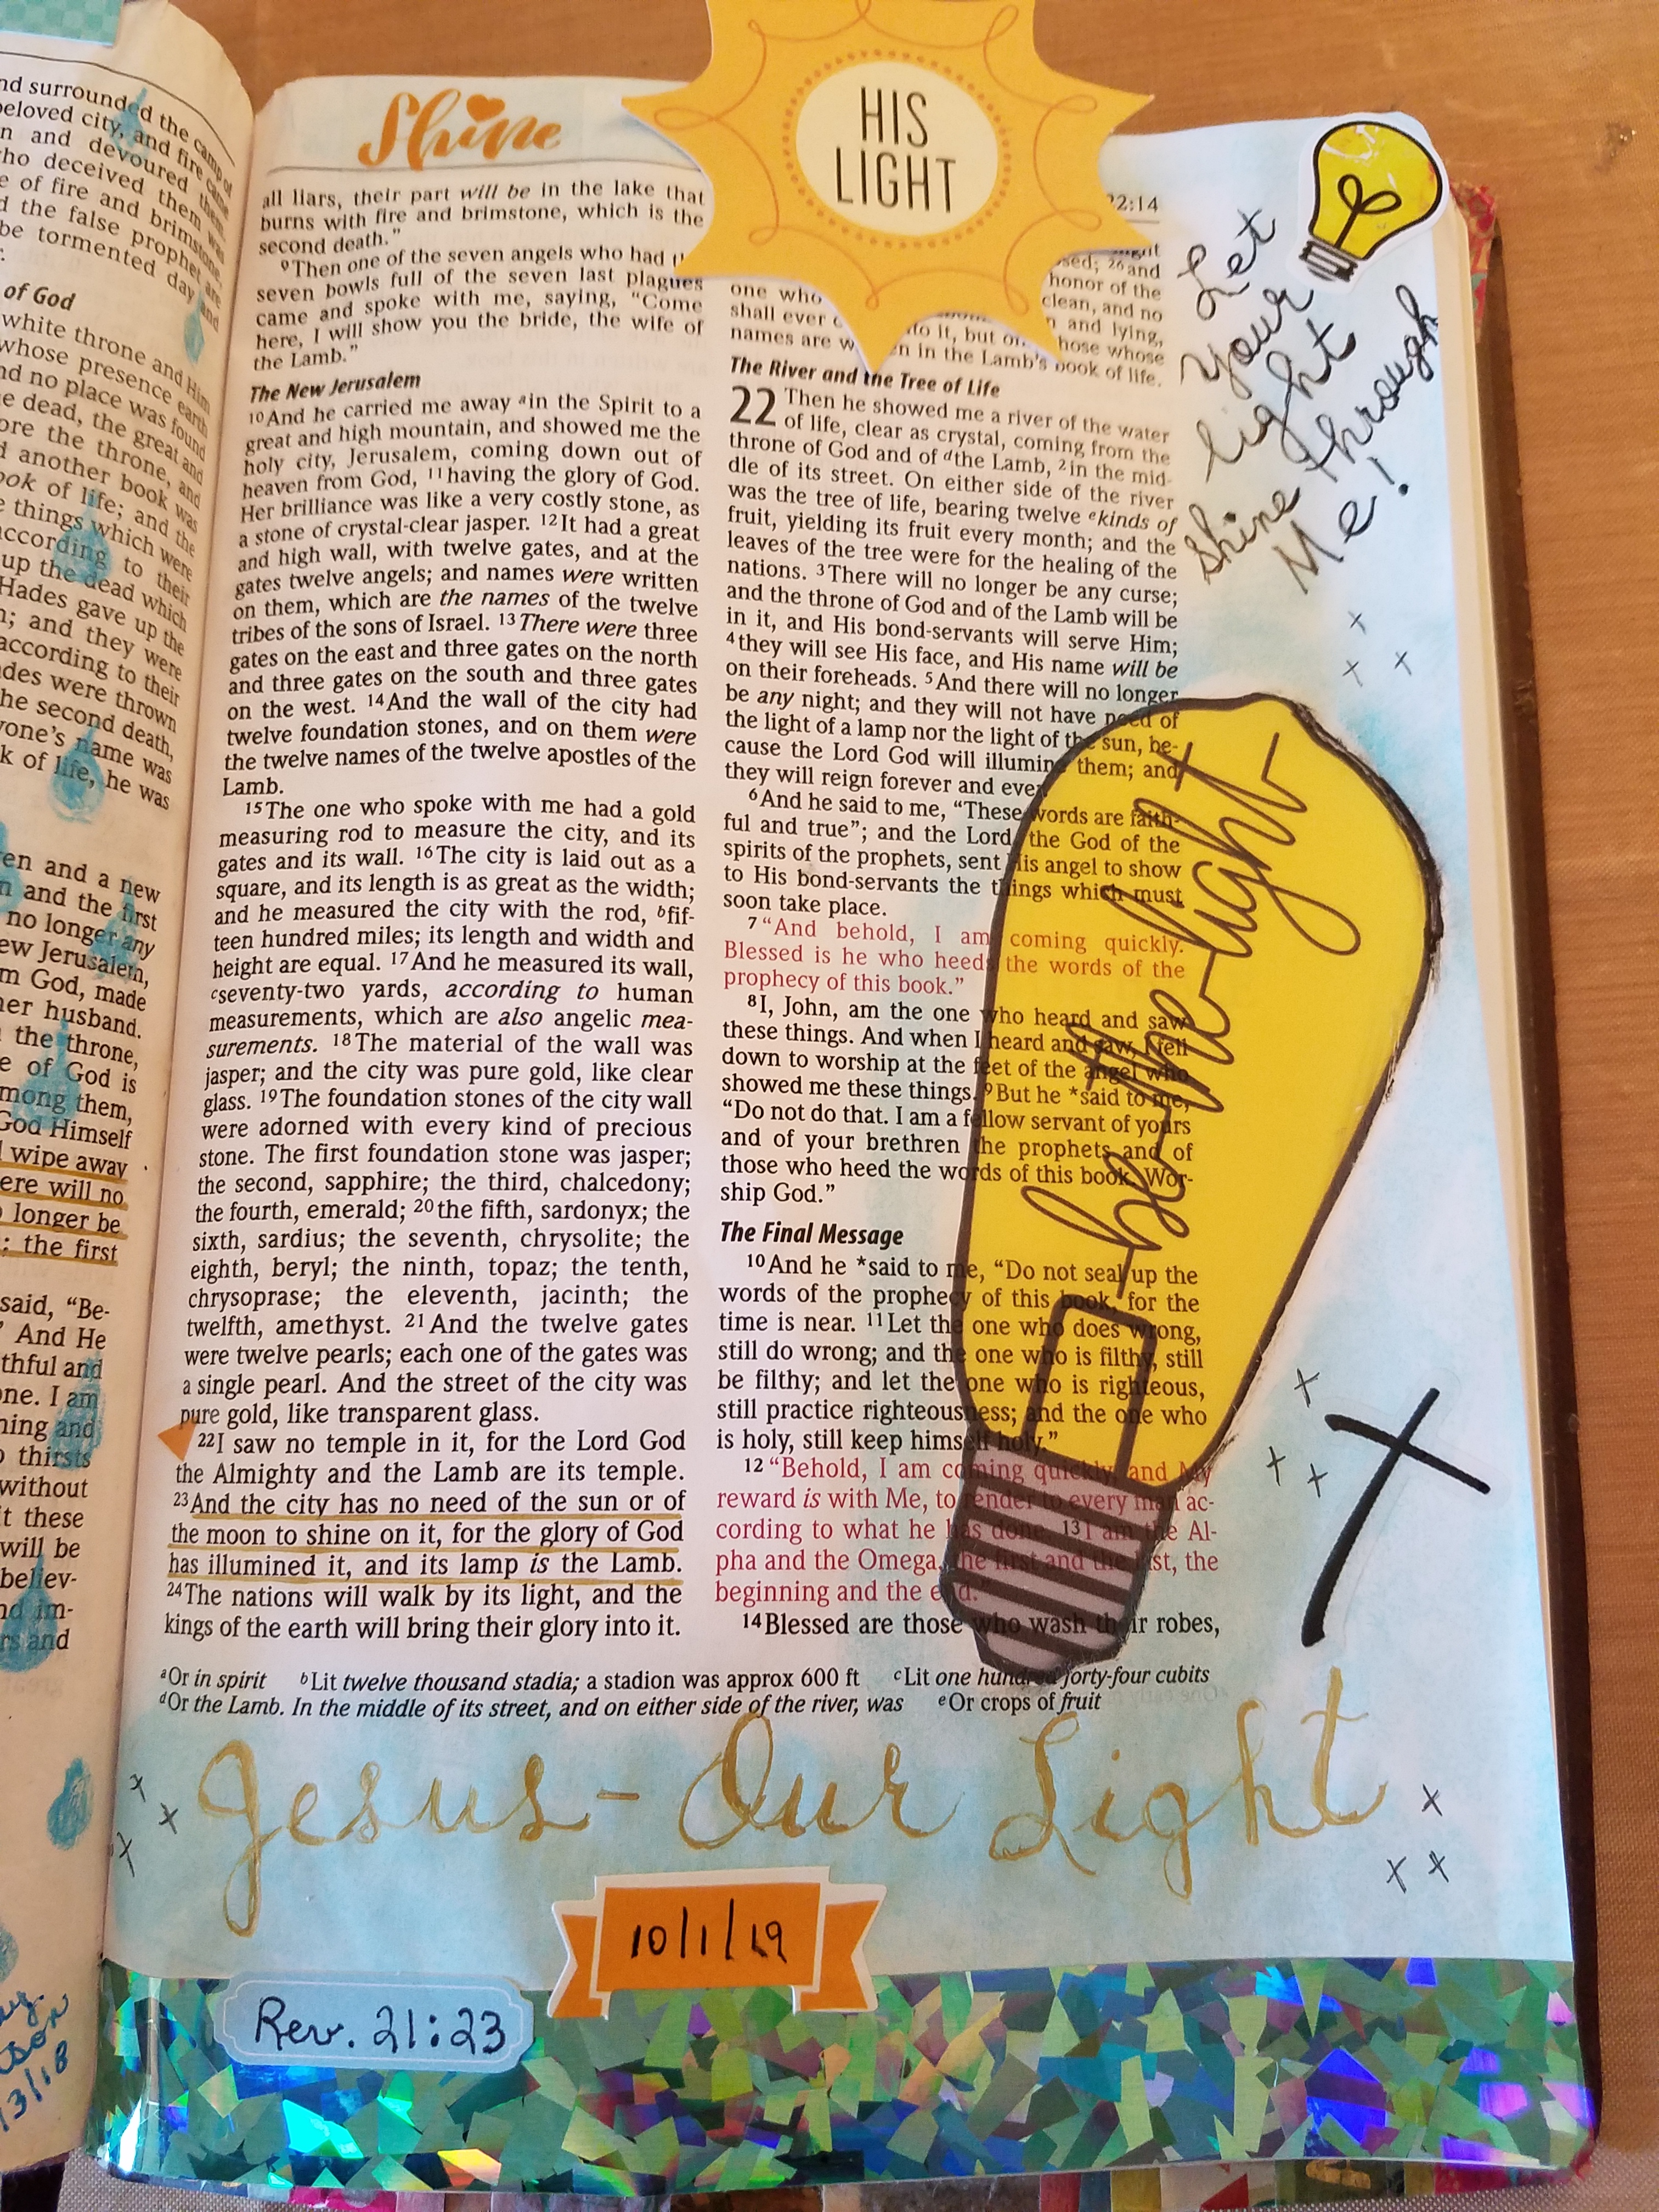 nd surrounded the camp of
beloved city, and fire came
n and devoured them.
ho deceived them was
e of fire and brimstone,
d the false prophet are
be tormented day and
of God
white throne and Him
whose presence earth
nd no place was found
e dead, the great and
ore the throne, and
d another book was
ook of life; and the
e things which were
according to their
up the dead which
Hades gave up the
n; and they were
according to their
des were thrown
he second death,
yone's name was
k of life, he was
en and a new
n and the first
no longer any
ew Jerusalem,
m God, made
her husband.
the throne,
e of God is
mong them,
God Himself
wipe away
ere will no
longer be
; the first
said, "Be-
And He
thful and
one. I am
ning and
thirsts
without
it these
will be
believ-
nd im-
rs and
3/18
Shine
HIS
LIGHT
all liars, their part will be in the lake that
burns with fire and brimstone, which is the
second death."
9Then one of the seven angels who had
seven bowls full of the seven last plagues
came and spoke with me, saying, "Come
here, I will show you the bride, the wife of
the Lamb."
The New Jerusalem
10And he carried me away ain the Spirit to a
great and high mountain, and showed me the
holy city, Jerusalem, coming down out of
heaven from God, 11having the glory of God.
Her brilliance was like a very costly stone, as
a stone of crystal-clear jasper. 12It had a great
and high wall, with twelve gates, and at the
gates twelve angels; and names were written
on them, which are the names of the twelve
tribes of the sons of Israel. 13There were three
gates on the east and three gates on the north
and three gates on the south and three gates
on the west. 14And the wall of the city had
twelve foundation stones, and on them were
the twelve names of the twelve apostles of the
Lamb.
15The one who spoke with me had a gold
measuring rod to measure the city, and its
gates and its wall. 16The city is laid out as a
square, and its length is as great as the width;
and he measured the city with the rod, bfif-
teen hundred miles; its length and width and
height are equal. 17And he measured its wall,
cseventy-two yards, according to human
measurements, which are also angelic mea-
surements. 18The material of the wall was
jasper; and the city was pure gold, like clear
glass. 19The foundation stones of the city wall
were adorned with every kind of precious
stone. The first foundation stone was jasper;
the second, sapphire; the third, chalcedony;
the fourth, emerald; 20the fifth, sardonyx; the
sixth, sardius; the seventh, chrysolite; the
eighth, beryl; the ninth, topaz; the tenth,
chrysoprase; the eleventh, jacinth; the
twelfth, amethyst. 21And the twelve gates
were twelve pearls; each one of the gates was
a single pearl. And the street of the city was
pure gold, like transparent glass.
22I saw no temple in it, for the Lord God
the Almighty and the Lamb are its temple.
23And the city has no need of the sun or of
the moon to shine on it, for the glory of God
has illumined it, and its lamp is the Lamb.
24The nations will walk by its light, and the
kings of the earth will bring their glory into it.
22:14
sed; 26and
one who honor of the
shall ever clean, and no
names are to it, but and lying,
en in the Lamb's book of life.
The River and the Tree of Life
22 Then he showed me a river of the water
of life, clear as crystal, coming from the
throne of God and of dthe Lamb, 2in the mid-
dle of its street. On either side of the river
was the tree of life, bearing twelve ekinds of
fruit, yielding its fruit every month; and the
leaves of the tree were for the healing of the
nations. 3There will no longer be any curse;
and the throne of God and of the Lamb will be
in it, and His bond-servants will serve Him;
4they will see His face, and His name will be
on their foreheads. 5And there will no longer
be any night; and they will not have need of
the light of a lamp nor the light of the sun, be-
cause the Lord God will illumine them; and
they will reign forever and ever.
6And he said to me, "These words are faith-
ful and true"; and the Lord, the God of the
spirits of the prophets, sent His angel to show
to His bond-servants the things which must
soon take place.
7"And behold, I am coming quickly.
Blessed is he who heeds the words of the
prophecy of this book."
8I, John, am the one who heard and saw
these things. And when I heard and saw, I fell
down to worship at the feet of the angel who
showed me these things. 9But he *said to me,
"Do not do that. I am a fellow servant of yours
and of your brethren the prophets and of
those who heed the words of this book. Wor-
ship God."
The Final Message
10And he *said to me, "Do not seal up the
words of the prophecy of this book, for the
time is near. 11Let the one who does wrong,
still do wrong; and the one who is filthy, still
be filthy; and let the one who is righteous,
still practice righteousness; and the one who
is holy, still keep himself holy."
12"Behold, I am coming quickly, and My
reward is with Me, to render to every man ac-
cording to what he has done. 13I am the Al-
pha and the Omega, the first and the last, the
beginning and the end."
14Blessed are those who wash their robes,
aOr in spirit bLit twelve thousand stadia; a stadion was approx 600 ft cLit one hundred forty-four cubits
dOr the Lamb. In the middle of its street, and on either side of the river, was eOr crops of fruit
Let
your
light
shine through
Me!
be-the-light
Jesus - Our Light
10/1/19
Rev. 21:23